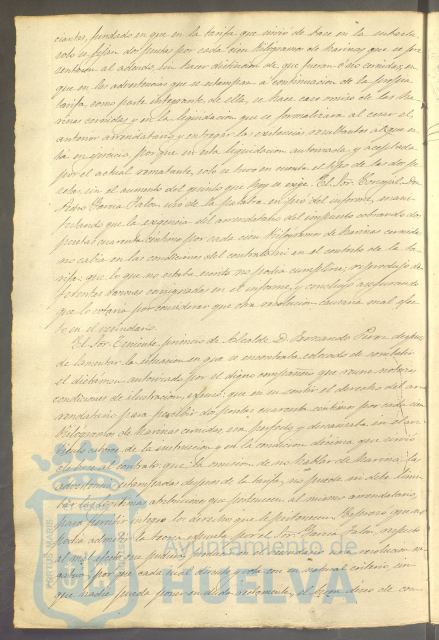 ciantes, fundado en que en la tarifa que sirvió de base en la subasta
solo se fijan dos pesetas por cada cien kilógramos de harinas que se pre-
sentasen al adeudo, sin hacer distincion de que fueran ó no cernidas; en
que en las advertencias que se estampan á continuacion de la propia
tarifa, como parte integrante de ella, se hace caso omiso de las ha-
rinas cernidas y en la liquidacion que se formalizara al cesar el
anterior arrendatario y entregar la existencias resultantes al que es-
ta en ejercicio, por que en esta liquidacion autorizada y aceptada
por el actual rematante, solo se tuvo en cuenta el tipo de las dos pe-
setas, sin el aumento del que hoy se exige. El Sor. Concejal Don
Pedro Garcia Jalon uso de la palabra en pró del informe, manis-
tando que la exigencia del arrendatario del impuesto cobrando dos
pesetas cuarenta céntimos por cada cien kilógramos de harinas cernidas
no cabia en las condiciones del contrato ni en el contesto de la ta-
rifa: que lo que no estaba escrito no podia cumplirse; reprodujo di-
ferentes razones consignadas en el informe, y concluyó asegurando
que lo votaria por considerar que otra resolucion causaria mal efec-
to en el vecindario.
El Sor. Teniente primero de Alcalde D. Fernando Perez despues
de lamentar la situacion en que se encontraba colocado de combatir
el dictámen autorizado por el digno compañero que reune notorias
condiciones de ilustracion, espuso: que en su sentir el derecho del ar-
rendatario para percibir dos pesetas cuarenta céntimos por cada cien
kilógramos de harinas cernidas era perfecto y descansaba en el ar-
tículo catorce de la instruccion y en la condicion décima que sirvió
de base al contrato: que la omision de no hablar de harina las
advertencias estampadas despues de la tarifa, no puede en debe limi-
tar las legitimas atribuciones que pertenecen al mismo arrendatario,
para percibir integros los derechos que le pertenecen. Observó que no
podia admitir la teoria espuesta por el Sor. Garcia Jalon respecto
al mal efecto que pudiera causar en el vecindario una resolucion ne-
gativa, por que cada cual discute y vota con su natural criterio, sin
que nadie pueda poner en duda rectamente, el buen deseo de con-
Ayuntamiento de
HUELVA